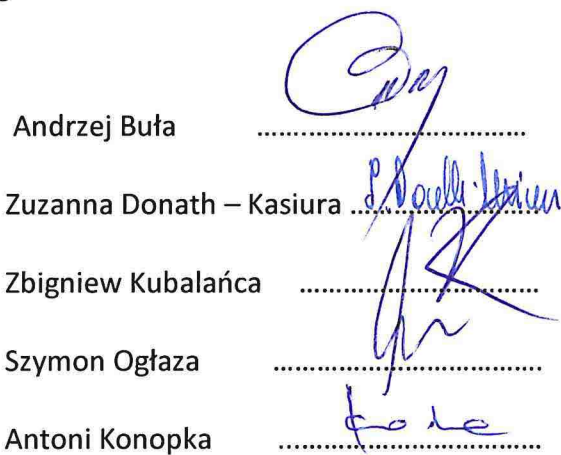 Andrzej Buła ..............................
Zuzanna Donath – Kasiura ..............................
Zbigniew Kubalańca ..............................
Szymon Ogłaza ..............................
Antoni Konopka ..............................